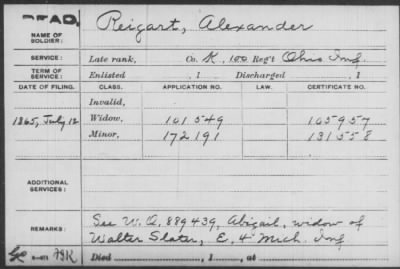 DEAD.
NAME OF SOLDIER: Reigart, Alexander
SERVICE: Late rank, Co. K, 100 Reg't Ohio Inf
TERM OF SERVICE: Enlisted , 1 Discharged , 1
DATE OF FILING. CLASS. APPLICATION NO. LAW. CERTIFICATE NO.
Invalid,
1865, July 12 Widow, 101 549 105957
Minor, 172191 131558
ADDITIONAL SERVICES:
REMARKS: See W. O. 889439, Abigail, widow of
Walter Slater, E. 4" Mich. Inf
Died , 1 , at